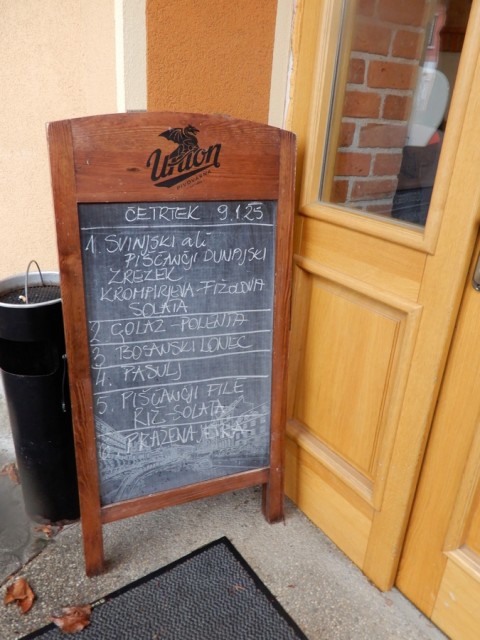 Union
PIVOVARNA
ČETRTEK 9.1.25
1. SVINJSKI ali
PIŠČANČJI DUNAJSKI
ZREZEK
KROMPIRJEVA-FIŽOLOVA
SOLATA
2. GOLAŽ-POLENTA
3. BOSANSKI LONEC
4. PASULJ
5. PIŠČANČJI FILE
RIŽ-SOLATA
6. PRAŽENA JETRA